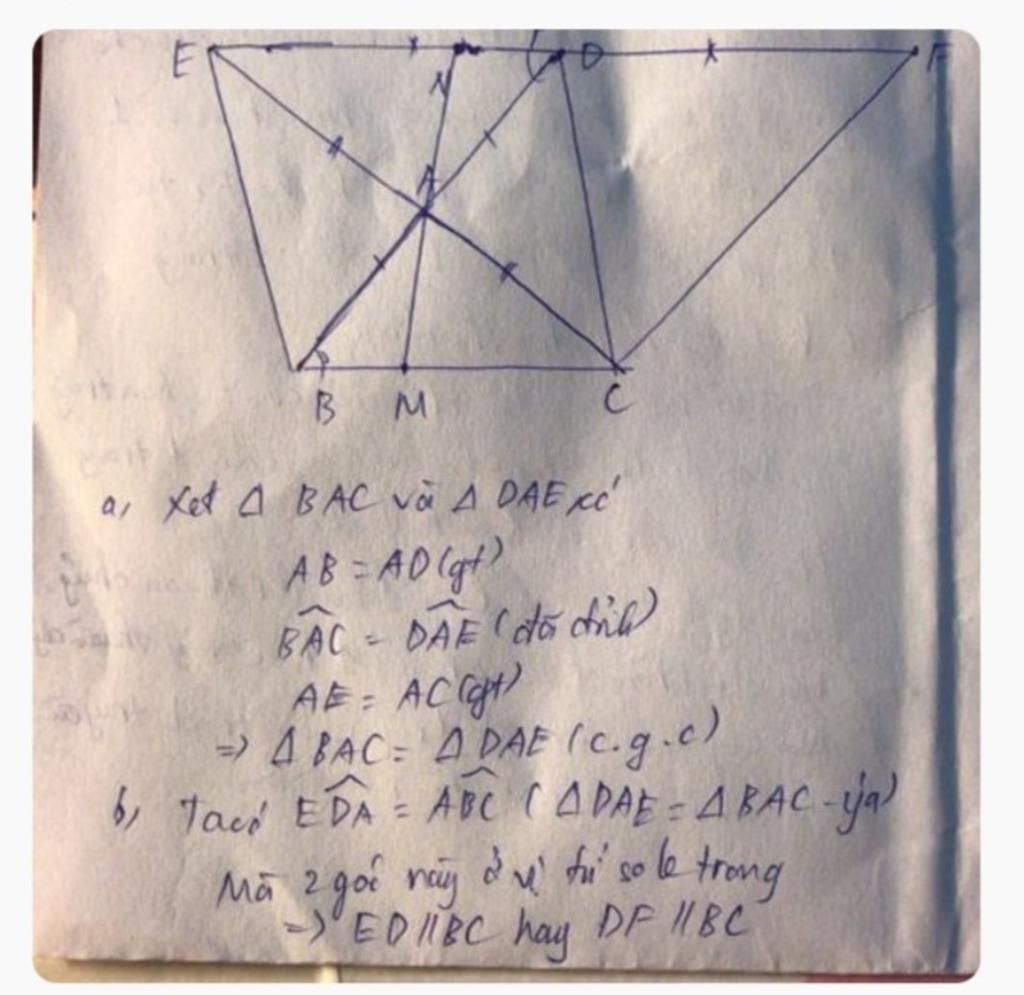 E N D F
A
B M C
a, Xét Δ BAC và Δ DAE có
AB = AD (gt)
BAC = DAE (đối đỉnh)
AE = AC (gt)
=> Δ BAC = Δ DAE (c.g.c)
b, Ta có EDA = ABC (Δ DAE = Δ BAC - ý a)
Mà 2 góc này ở vị trí so le trong
=> ED // BC hay DF // BC